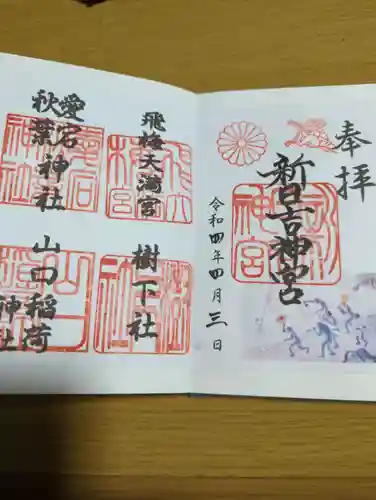 奉拝
新日吉神宮
令和四年四月三日
飛梅天満宮
樹下社
愛宕
秋葉神社
山口稲荷
神社